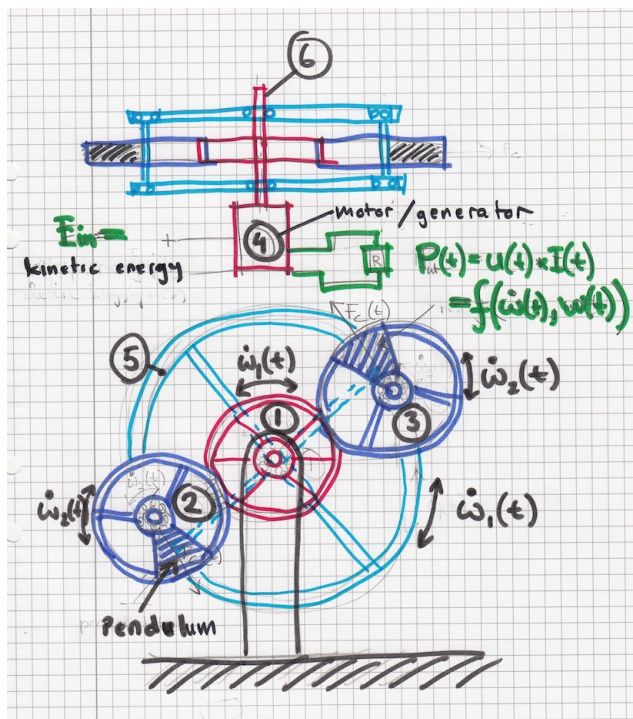 6
motor/generator
Ein =
+
4
kinetic energy
R
Put(t) = u(t) * I(t)
= f(ω̇(t), ω(t))
Fc(t)
5
ω̇1(t)
ω̇2(t)
1
3
ω̇2(t)
2
ω̇1(t)
Pendulum